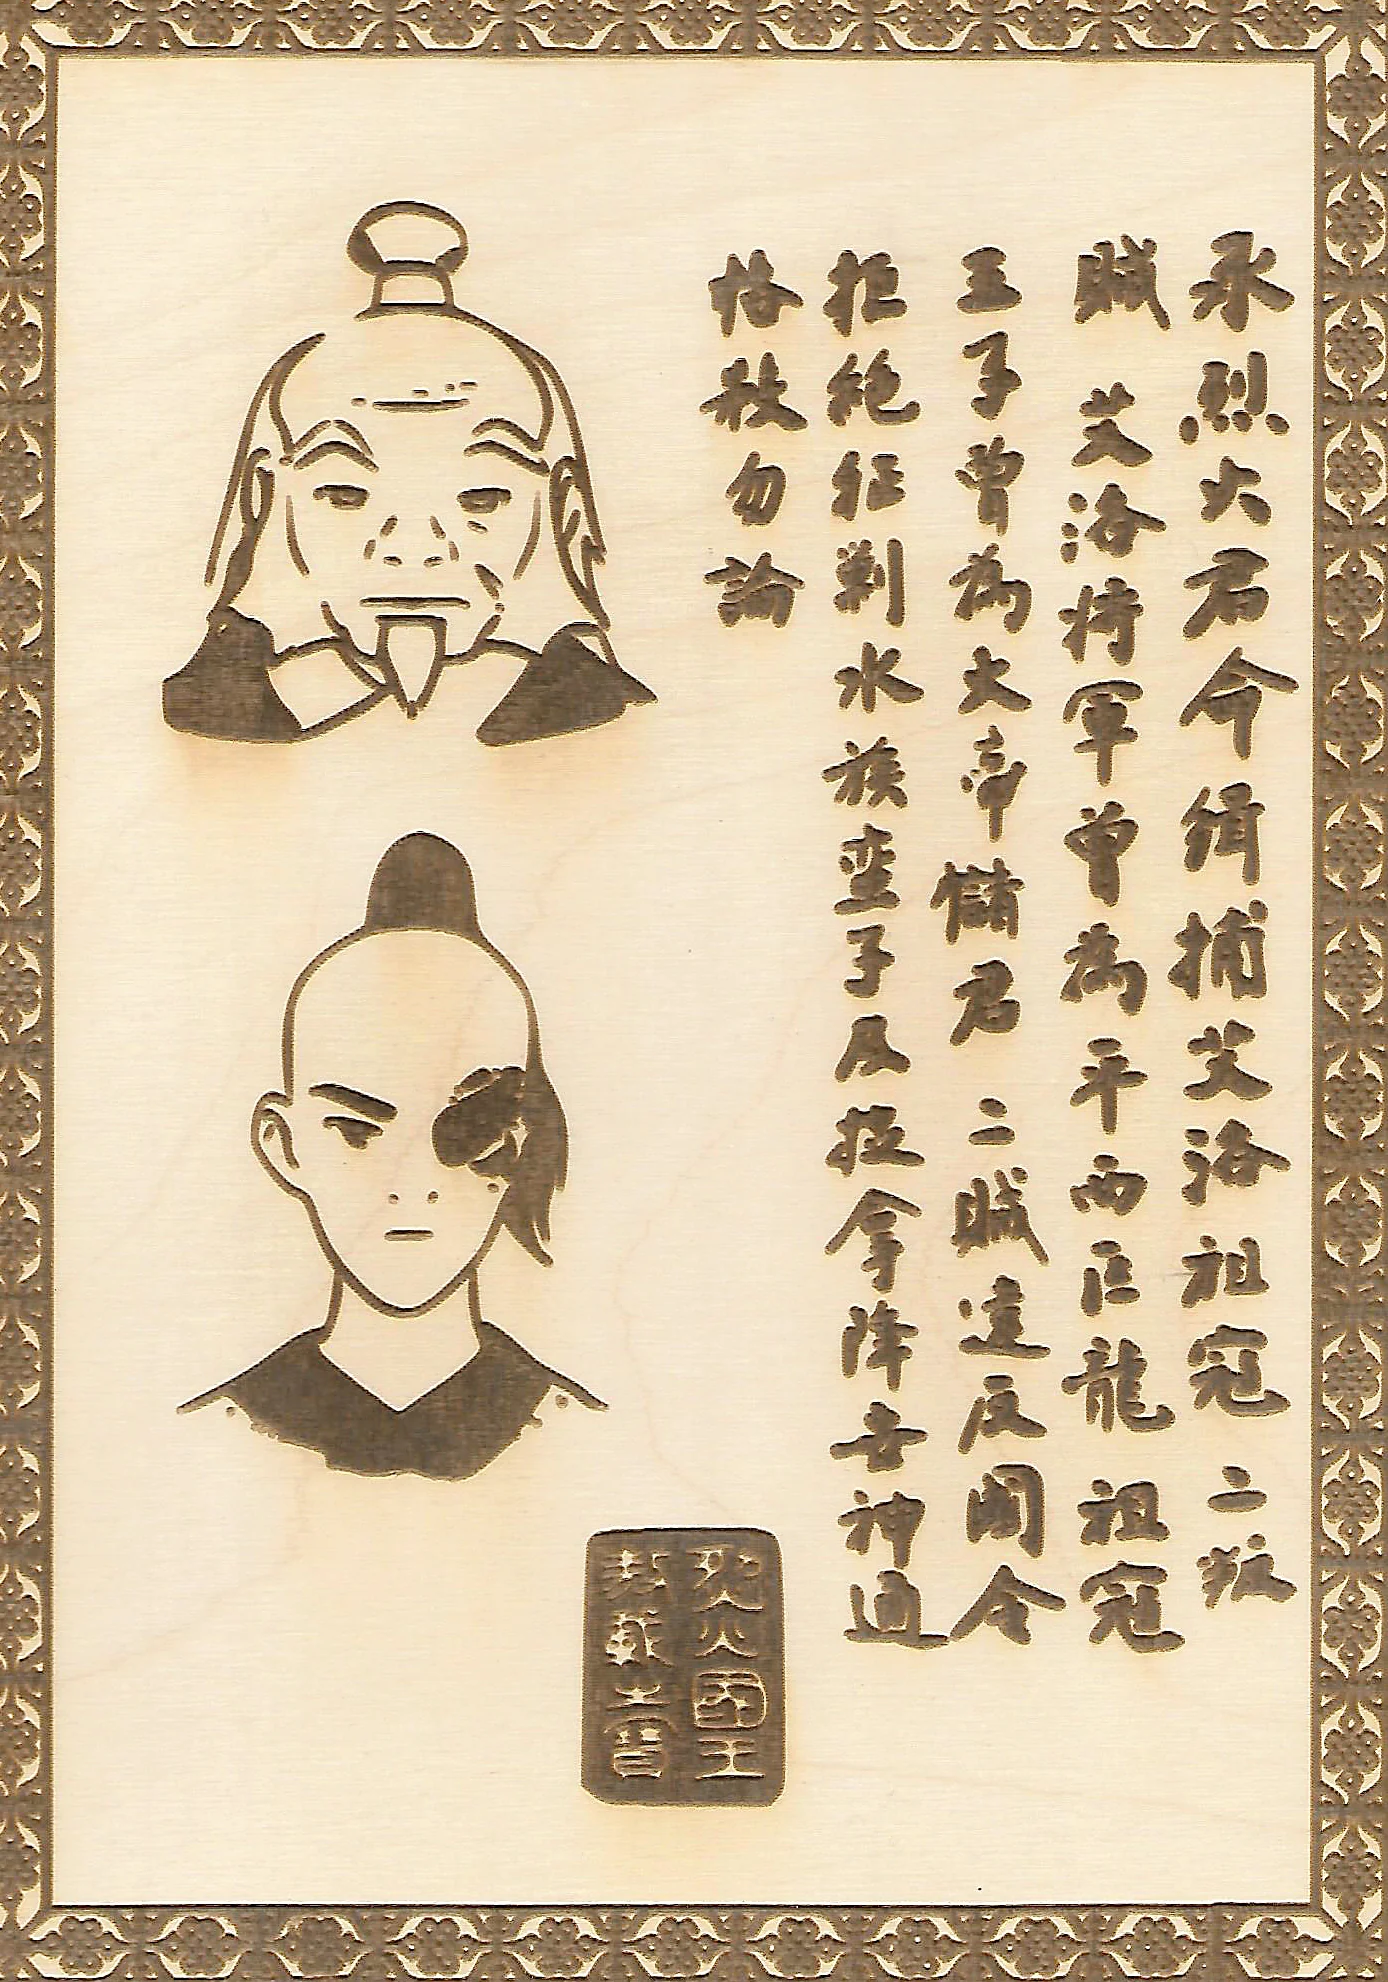 承烈火君令緝捕艾洛祖寇二叛
賊 艾洛將軍曾為平西巨龍 祖寇
王子曾為大帝儲君 二賊造反國令
拒絕征剿水族蛮子及捉拿降世神通
格殺勿論
烈火國王